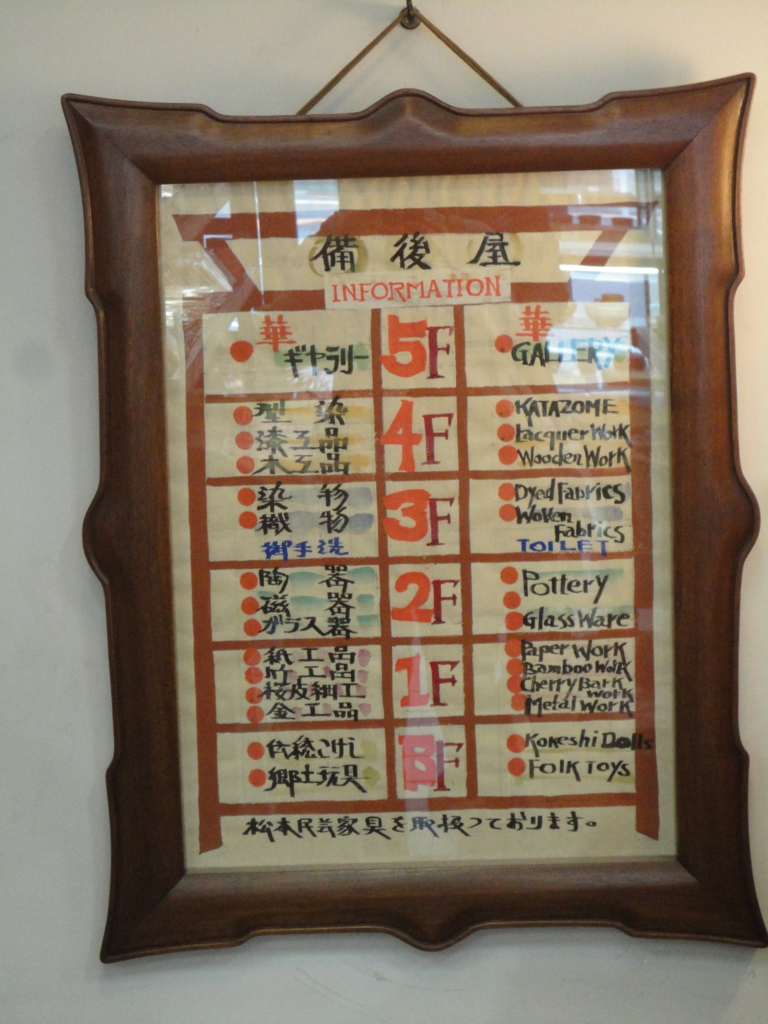 備後屋
INFORMATION
華
ギャラリー
5F
華
GALLERY
型染
漆工品
木工品
4F
KATAZOME
Lacquer Work
Wooden Work
染物
織物
御手洗
3F
Dyed Fabrics
Woven
Fabrics
TOILET
陶器
磁器
ガラス器
2F
Pottery
Glass Ware
紙工品
竹工品
桜皮細工
金工品
1F
Paper Work
Bamboo Work
Cherry Bark
Work
Metal Work
伝統こけし
郷土玩具
BF
Kokeshi Dolls
Folk Toys
松本民芸家具を取扱っております。